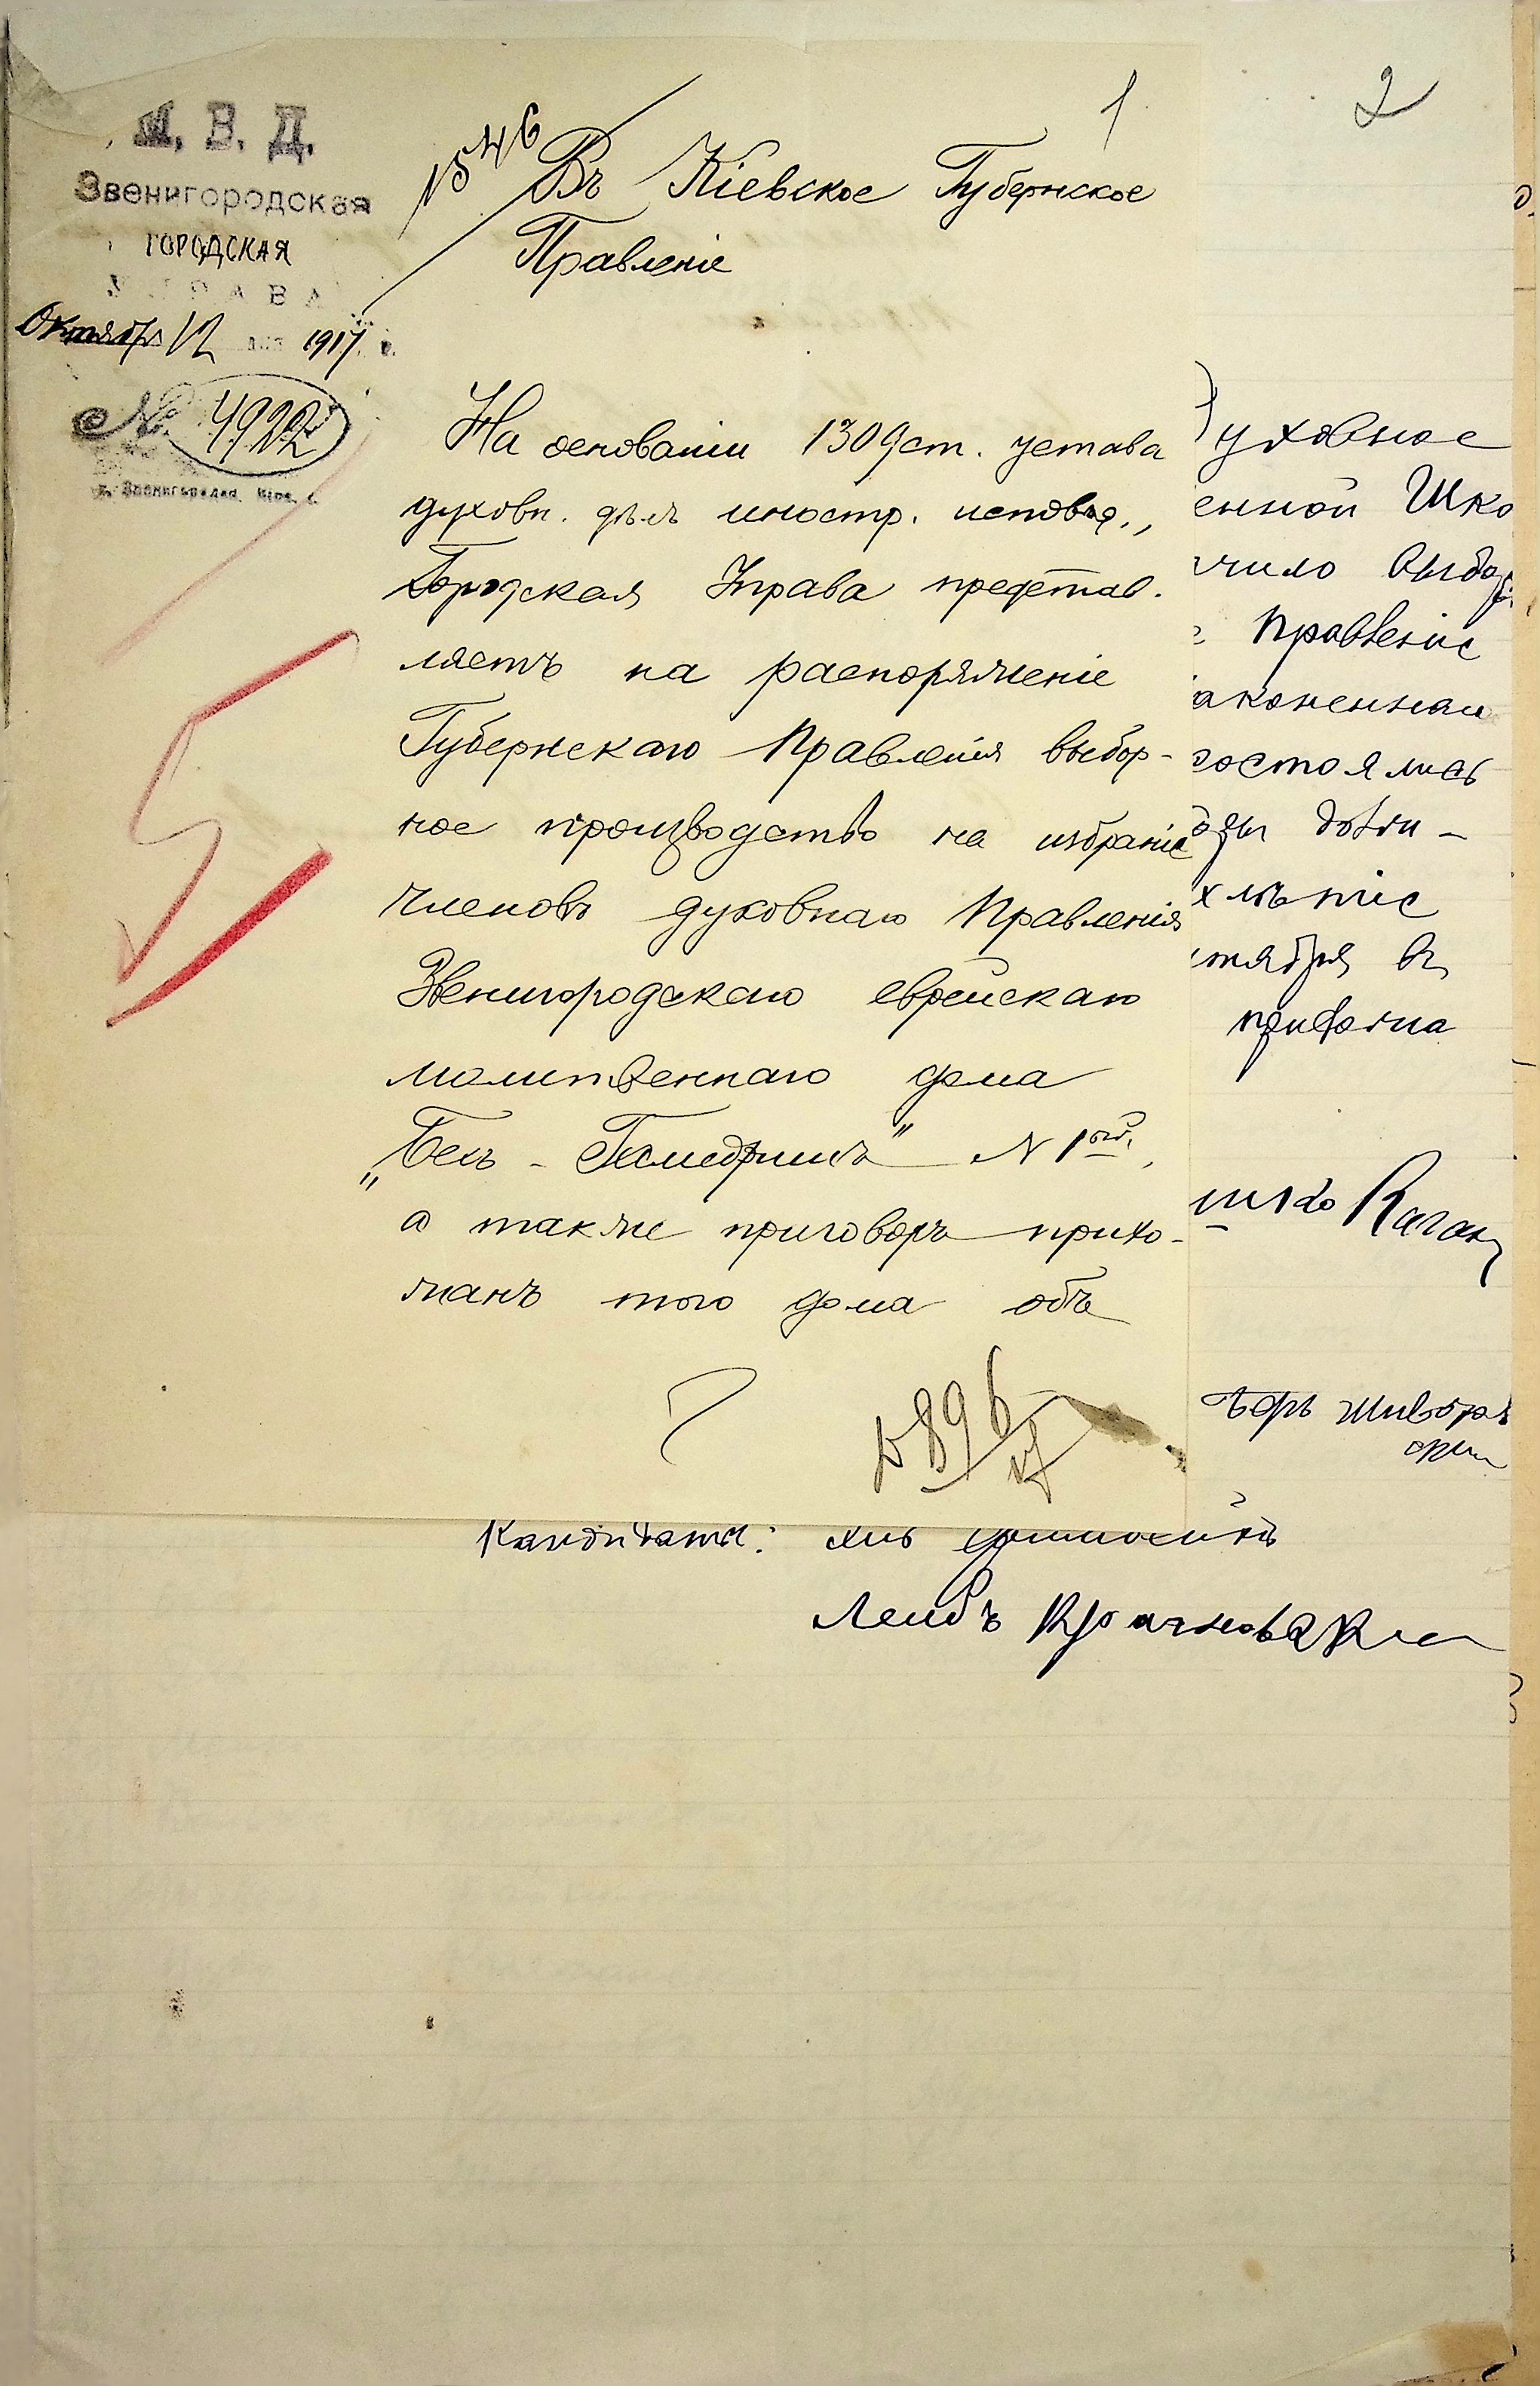 М. В. Д.
Звенигородская
ГОРОДСКАЯ
УПРАВА
Октября 12 дня 1917 г.
№ 4922
г. Звенигородка, Кіев. г.
1
2
Въ Кіевское Губернское
Правленіе
На основаніи 1309 ст. устава
духовн. дѣлъ иностр. исповѣд.,
Городская Управа представ-
ляетъ на распоряженіе
Губернскаго Правленія выбор-
ное производство на избраніе
членовъ духовнаго Правленія
Звенигородскаго еврейскаго
молитвеннаго дома
„Бесъ-Гамедришъ" N 1ый,
а также приговоръ прихо-
жанъ того дома объ
уховное
енной Шко
чило выбор
Правленіе
аконенная
состоялись
хлѣтіе
тября въ
Каган
Кандидаты:
Лейбъ